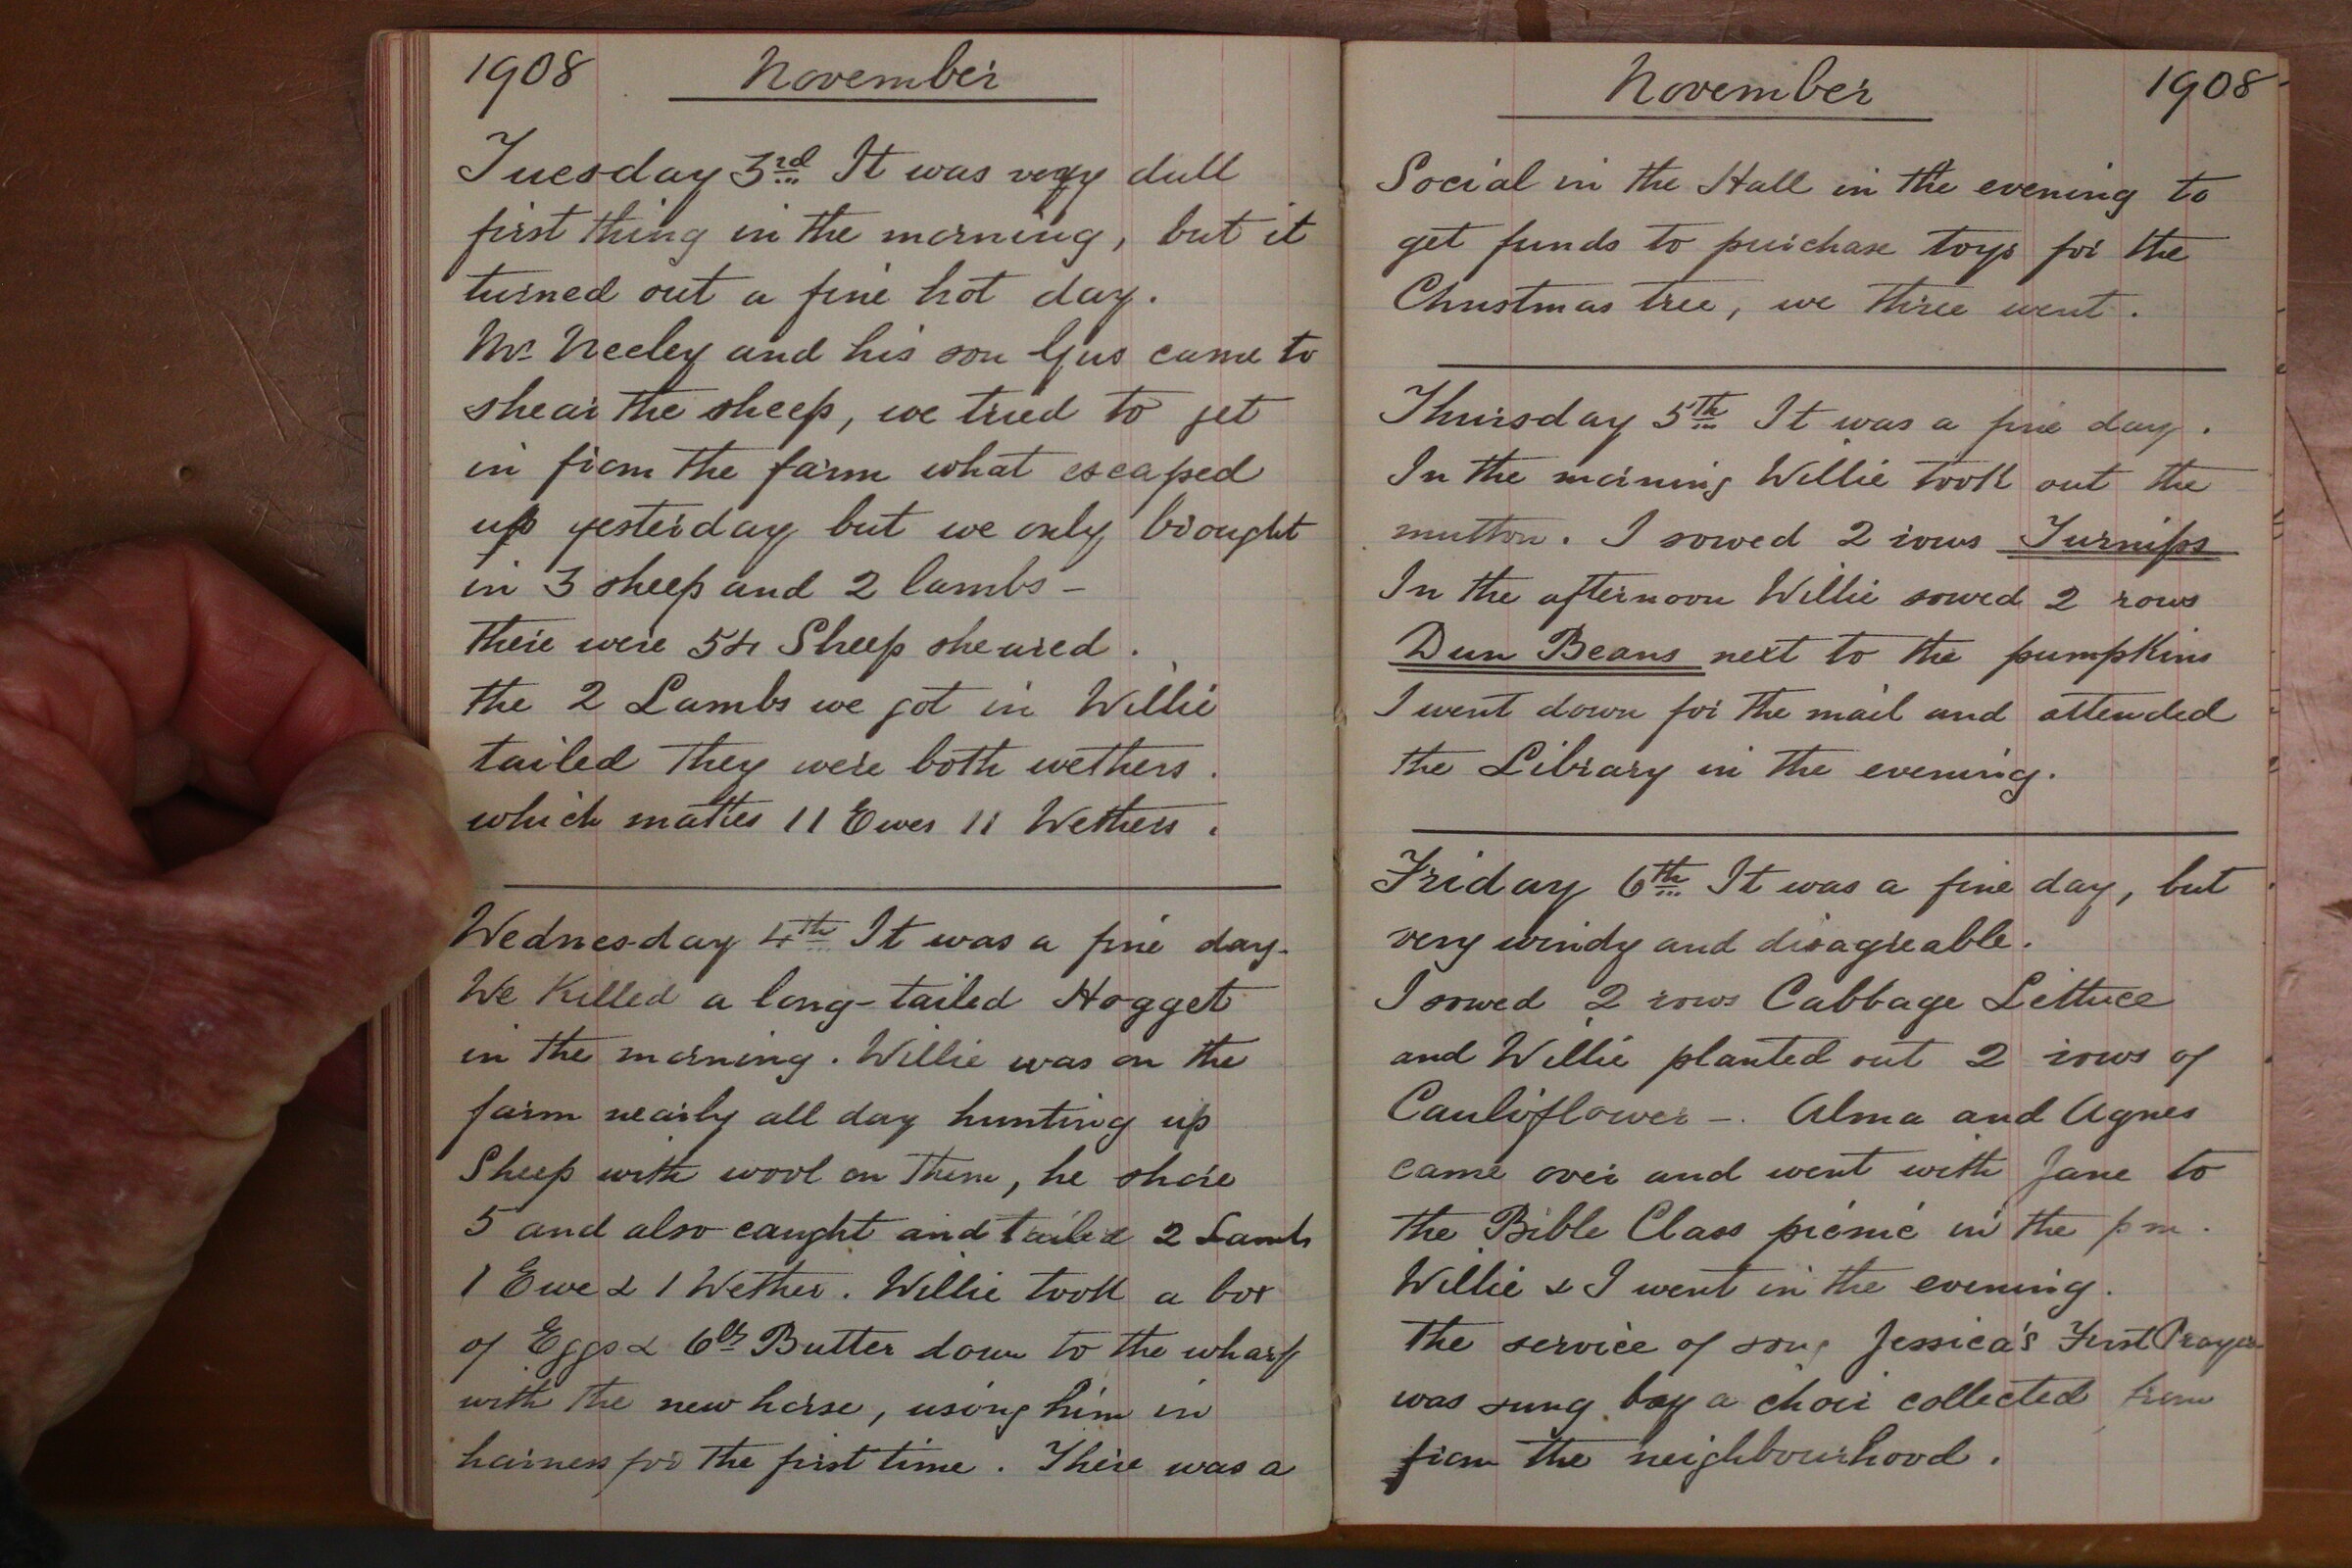 1908 November
Tuesday 3rd It was very dull
first thing in the morning, but it
turned out a fine hot day.
Mr. Neeley and his son Gus came to
shear the sheep, we tried to get
in from the farm what escaped
up yesterday but we only brought
in 3 sheep and 2 lambs -
there were 54 Sheep sheared.
the 2 Lambs we got in Willie
tailed they were both wethers.
which makes 11 Ewes 11 Wethers.
Wednesday 4th It was a fine day.
We Killed a long-tailed Hogget
in the morning. Willie was on the
farm nearly all day hunting up
Sheep with wool on them, he shore
5 and also caught and tailed 2 Lambs
1 Ewe & 1 Wether. Willie took a box
of Eggs & 6lbs Butter down to the wharf
with the new horse, using him in
harness for the first time. There was a
November 1908
Social in the Hall in the evening to
get funds to purchase toys for the
Christmas tree, we three went.
Thursday 5th It was a fine day.
In the morning Willie took out the
mutton. I sowed 2 rows Turnips
In the afternoon Willie sowed 2 rows
Dun Beans next to the pumpkins
I went down for the mail and attended
the Library in the evening.
Friday 6th It was a fine day, but
very windy and disagreable.
I sowed 2 rows Cabbage Lettuce
and Willie planted out 2 rows of
Cauliflower -. Alma and Agnes
came over and went with Jane to
the Bible Class picnic in the pm.
Willie & I went in the evening.
The service of song Jessica's First Prayer
was sung by a choir collected from
from the neighbourhood.